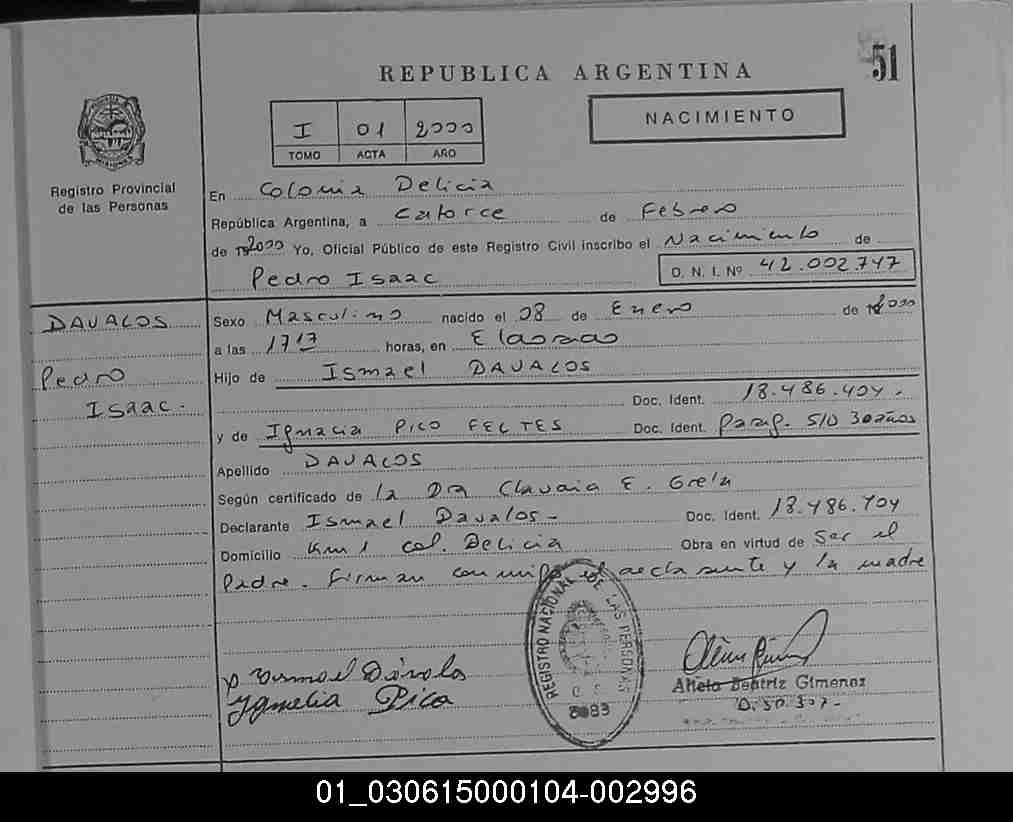 51
REPUBLICA ARGENTINA
I 01 2000
TOMO ACTA AÑO
NACIMIENTO
Registro Provincial
de las Personas
En Colonia Delicia
República Argentina, a Catorce de Febrero
de 2000 Yo, Oficial Público de este Registro Civil inscribo el Nacimiento de
Pedro Isaac D. N. I. Nº 42.002.747
DAVALOS
Pedro
Isaac.
Sexo Masculino nacido el 08 de Enero de 2000
a las 1717 horas, en Eldorado
Hijo de Ismael DAVALOS
Doc. Ident. 18.486.404.
y de Ignacia PICO FELTES Doc. Ident. Parag. S/D 30años
Apellido DAVALOS
Según certificado de la Dra E. Grela
Declarante Ismael Davalos- Doc. Ident. 18.486.704
Domicilio Km 1 Col. Delicia Obra en virtud de Ser el
Padre. Firman conmigo el y la madre
REGISTRO NACIONAL DE LAS PERSONAS
8083
Pico
Beatriz Gimenez
01_030615000104-002996